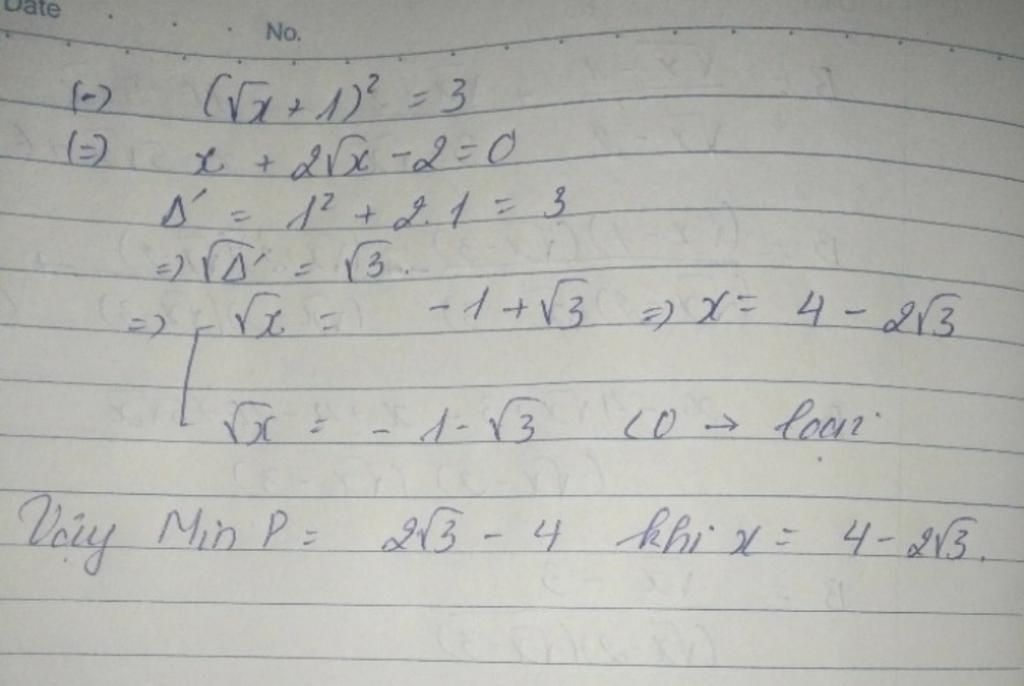 Date
No.
(=) (√x + 1)² = 3
(=) x + 2√x - 2 = 0
Δ' = 1² + 2.1 = 3
=> √Δ' = √3.
=> √x = -1 + √3 => x = 4 - 2√3
√x = -1 - √3 < 0 → loại
Vậy Min P = 2√3 - 4 khi x = 4 - 2√3.